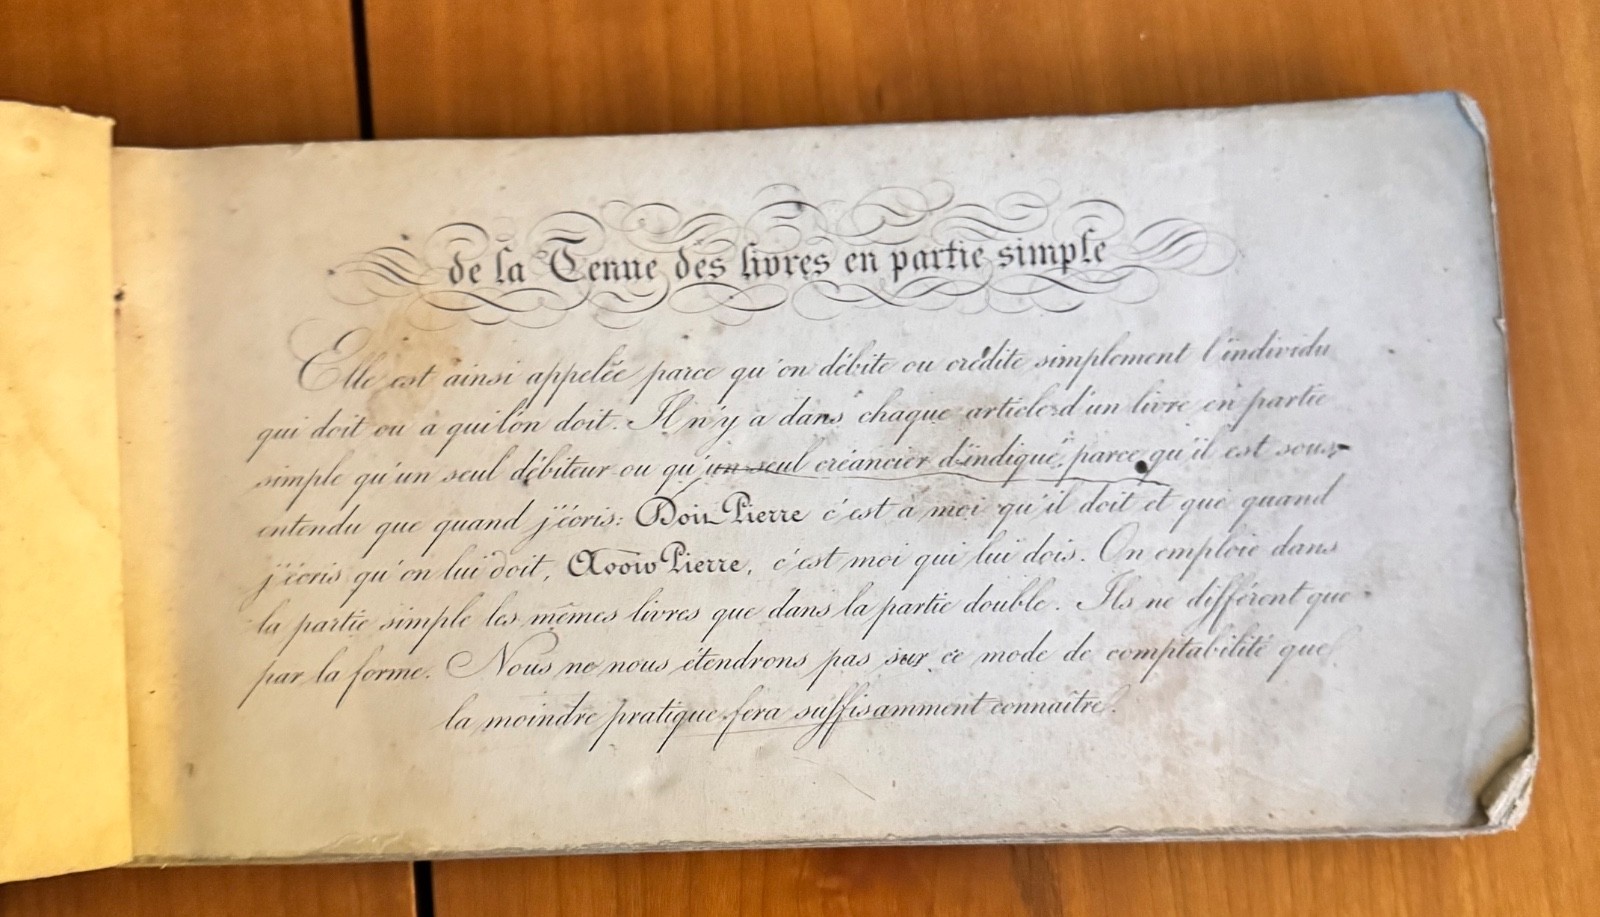 de la Tenue des livres en partie simple
Elle est ainsi appelée parce qu'on débite ou crédite simplement l'individu
qui doit ou à qui l'on doit. Il n'y a dans chaque article d'un livre en partie
simple qu'un seul débiteur ou qu'un seul créancier d'indiqué, parce qu'il est sous-
entendu que quand j'écris: Doit Pierre c'est à moi qu'il doit et que quand
j'écris qu'on lui doit, Avoir Pierre, c'est moi qui lui dois. On emploie dans
la partie simple les mêmes livres que dans la partie double. Ils ne différent que
par la forme. Nous ne nous étendrons pas sur ce mode de comptabilité que
la moindre pratique fera suffisamment connaître.